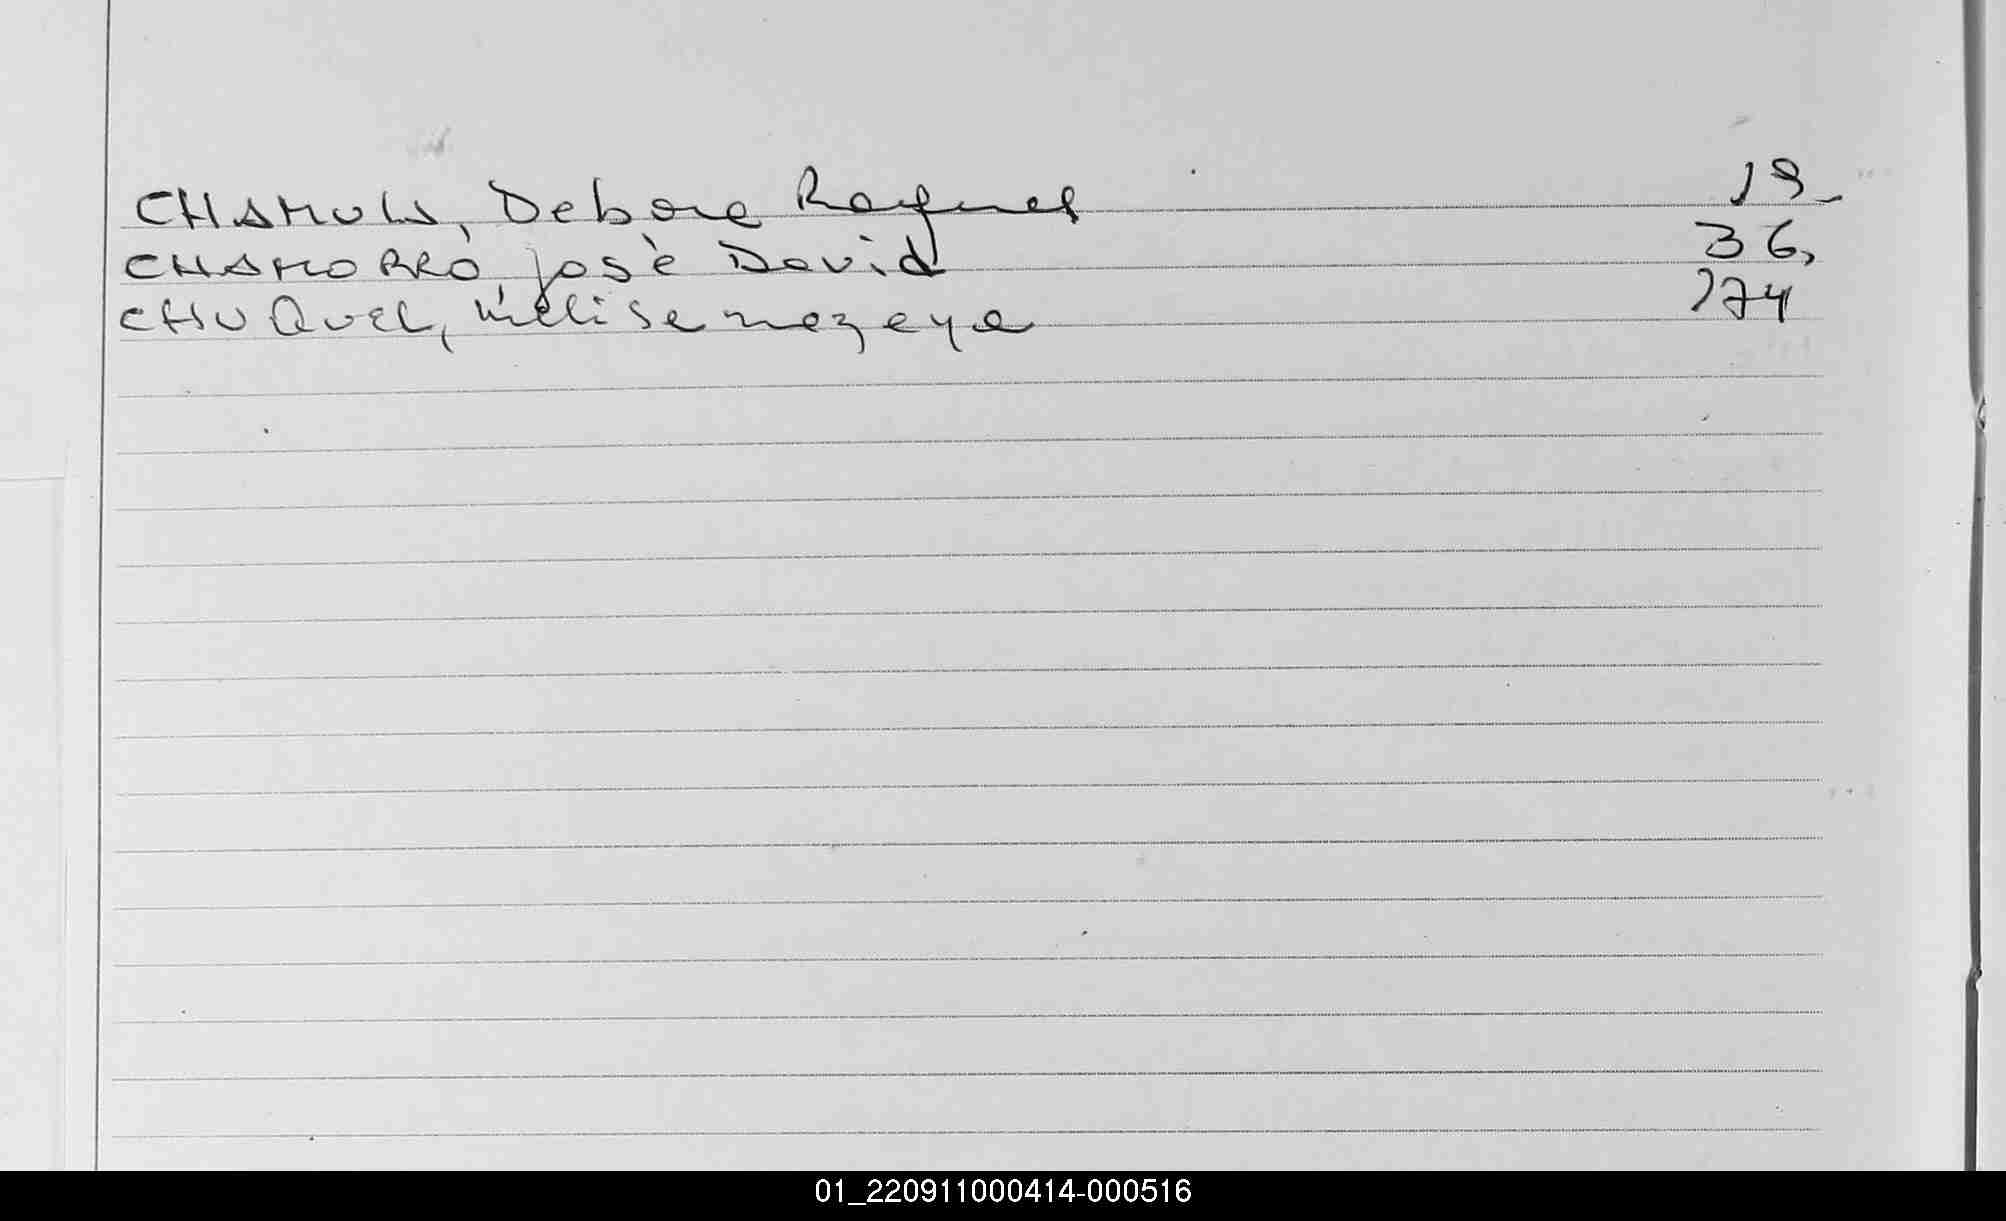 CHAMULA, Debora Raquel 19_
CHAMORRO, José David 36,
CHUQUEL, Melisa Mazeya 174
01_220911000414-000516